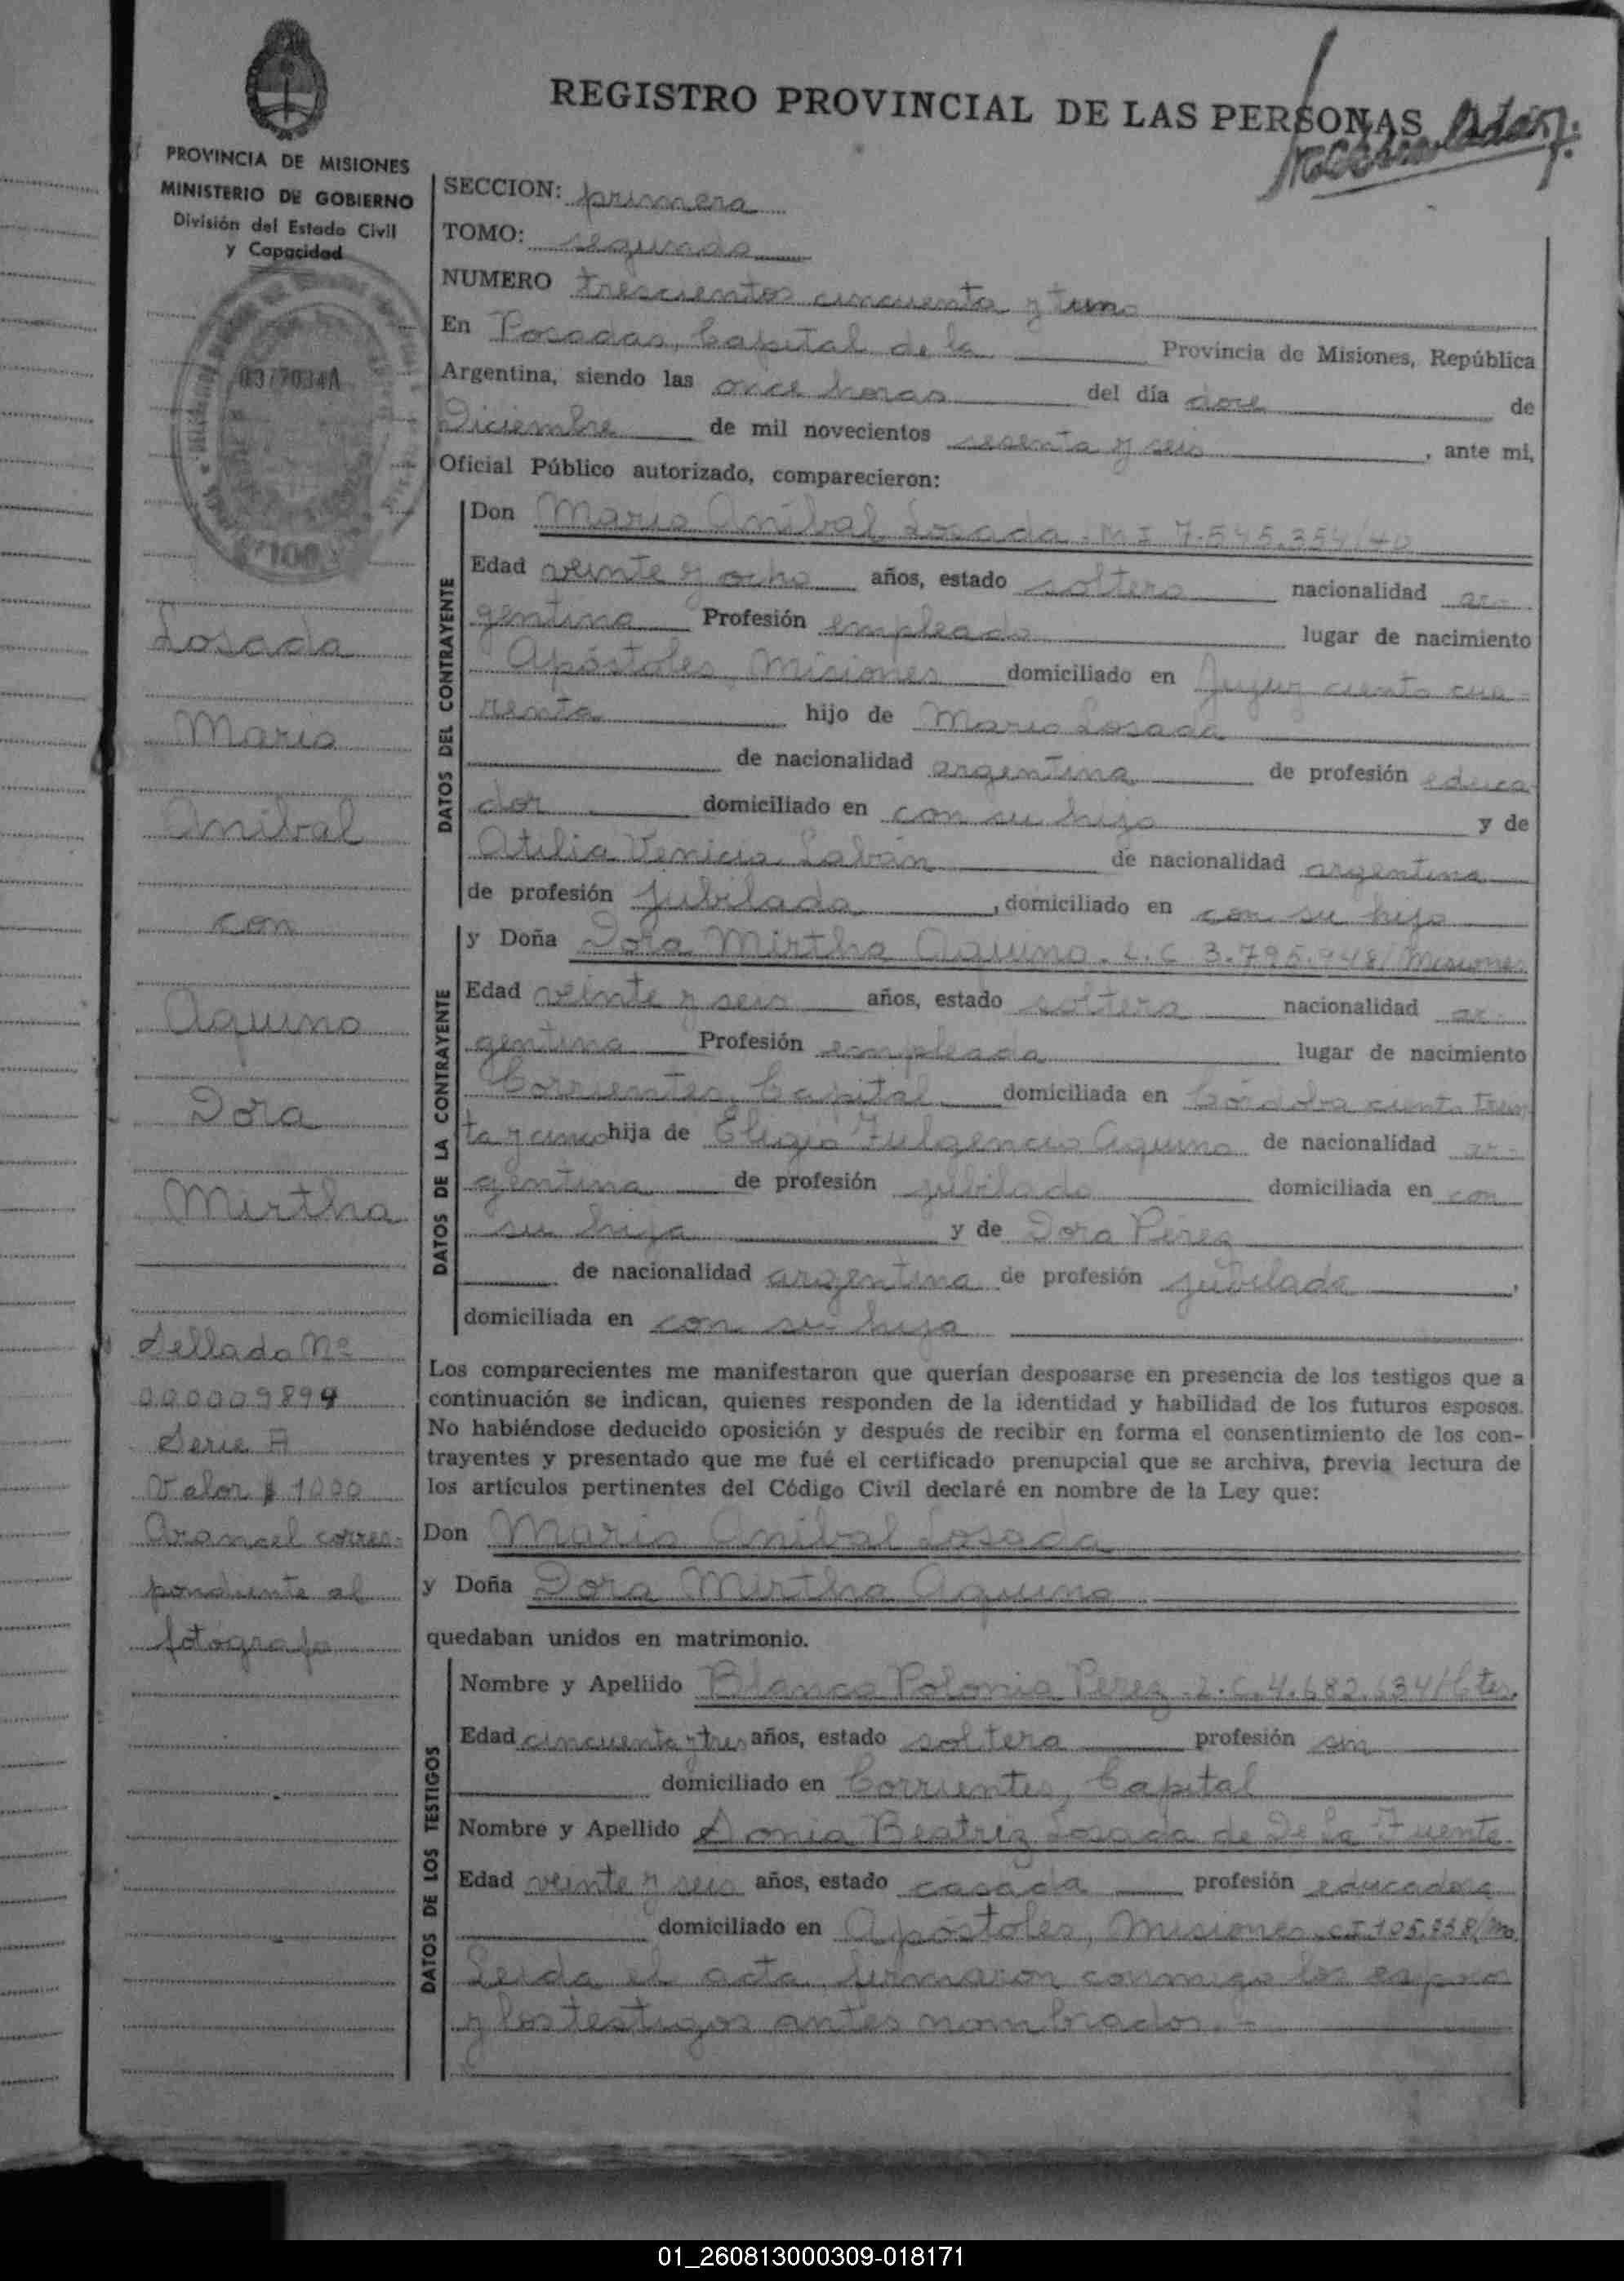 REGISTRO PROVINCIAL DE LAS PERSONAS
PROVINCIA DE MISIONES
MINISTERIO DE GOBIERNO
División del Estado Civil
y Capacidad
SECCION: primera
TOMO: segundo
NUMERO trescientos cincuenta y uno
En Posadas, Capital de la Provincia de Misiones, República
Argentina, siendo las once horas del día doce de
Diciembre de mil novecientos sesenta y seis, ante mi,
Oficial Público autorizado, comparecieron:
DATOS DEL CONTRAYENTE
Don Mario Anibal Losada. M I 7.545.354
Edad veinte y ocho años, estado soltero nacionalidad ar-
gentina Profesión empleado lugar de nacimiento
Apóstoles, Misiones domiciliado en Jujuy ciento cua-
renta hijo de Mario Losada
de nacionalidad argentina de profesión educa
dor domiciliado en con su hijo y de
Atilia Venicia Labán de nacionalidad argentina
de profesión jubilada, domiciliado en con su hijo
DATOS DE LA CONTRAYENTE
y Doña Dora Mirtha Aquino. L.C 3.795.948/ Misiones
Edad veinte y seis años, estado soltera nacionalidad ar-
gentina Profesión empleada lugar de nacimiento
Corrientes, Capital domiciliada en Córdoba ciento trein
ta y cinco hija de Eligio Fulgencio Aquino de nacionalidad ar-
gentina de profesión jubilado domiciliada en con
su hija y de Dora Pérez
de nacionalidad argentina de profesión jubilada,
domiciliada en con su hija
Los comparecientes me manifestaron que querían desposarse en presencia de los testigos que a
continuación se indican, quienes responden de la identidad y habilidad de los futuros esposos.
No habiéndose deducido oposición y después de recibir en forma el consentimiento de los con-
trayentes y presentado que me fué el certificado prenupcial que se archiva, previa lectura de
los artículos pertinentes del Código Civil declaré en nombre de la Ley que:
Don Mario Anibal Losada
y Doña Dora Mirtha Aquino
quedaban unidos en matrimonio.
DATOS DE LOS TESTIGOS
Nombre y Apellido Blanca Polonia Perez - L.C. 4.682.634/Ctes.
Edad cincuenta y tres años, estado soltera profesión sin
domiciliado en Corrientes, Capital
Nombre y Apellido Sonia Beatriz Losada de De La Fuente
Edad veinte y seis años, estado casada profesión educadora
domiciliado en Apóstoles, Misiones
Leida el acta, firmaron conmigo los esposos
y los testigos antes nombrados. -
Losada
Mario
Anibal
con
Aquino
Dora
Mirtha
Sellado Nº
000009894
Serie A
Valor $ 1000
Arancel corres-
pondiente al
fotógrafo
01_260813000309-018171